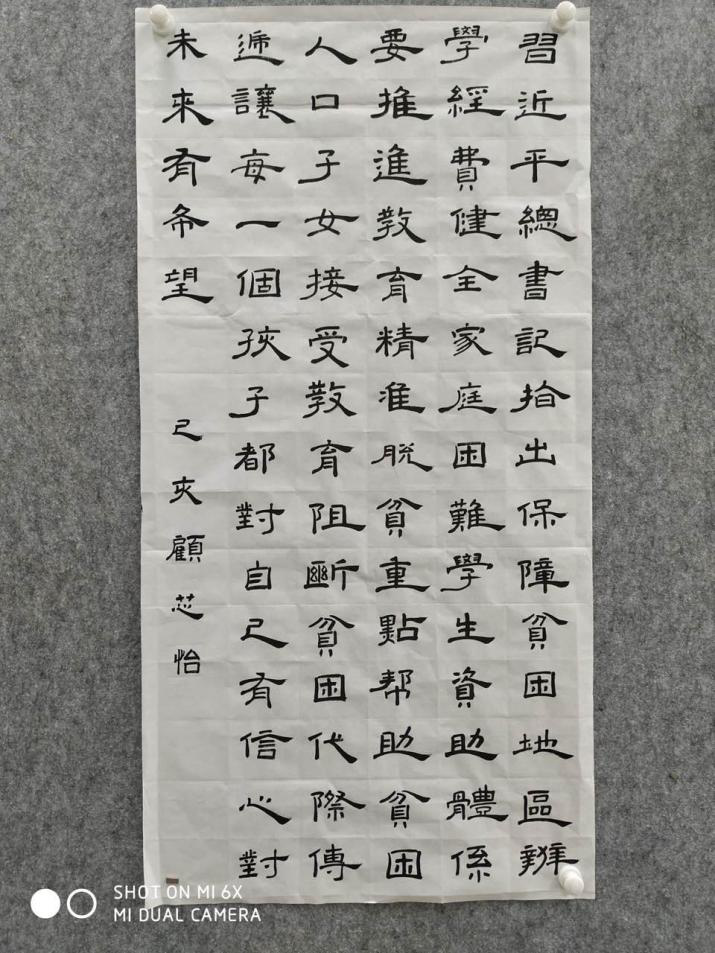 習近平總書記指出保障貧困地區辦
學經費健全家庭困難學生資助體係
要推進教育精准脱貧重點幫助貧困
人口子女接受教育阻斷貧困代際傳
遞讓每一個孩子都對自己有信心對
未來有希望
己亥顧芯怡
SHOT ON MI 6X
MI DUAL CAMERA